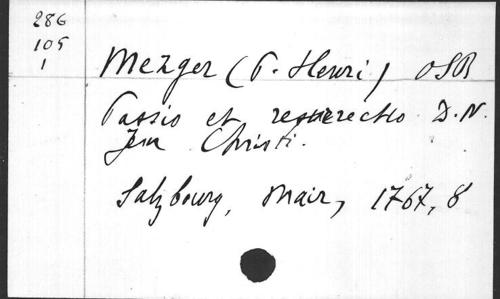 286
105
1
Mezger (P. Henri) OSB
Passio et resurrectio D.N.
Jesu Christi.
Salzbourg, Mair, 1767, 8